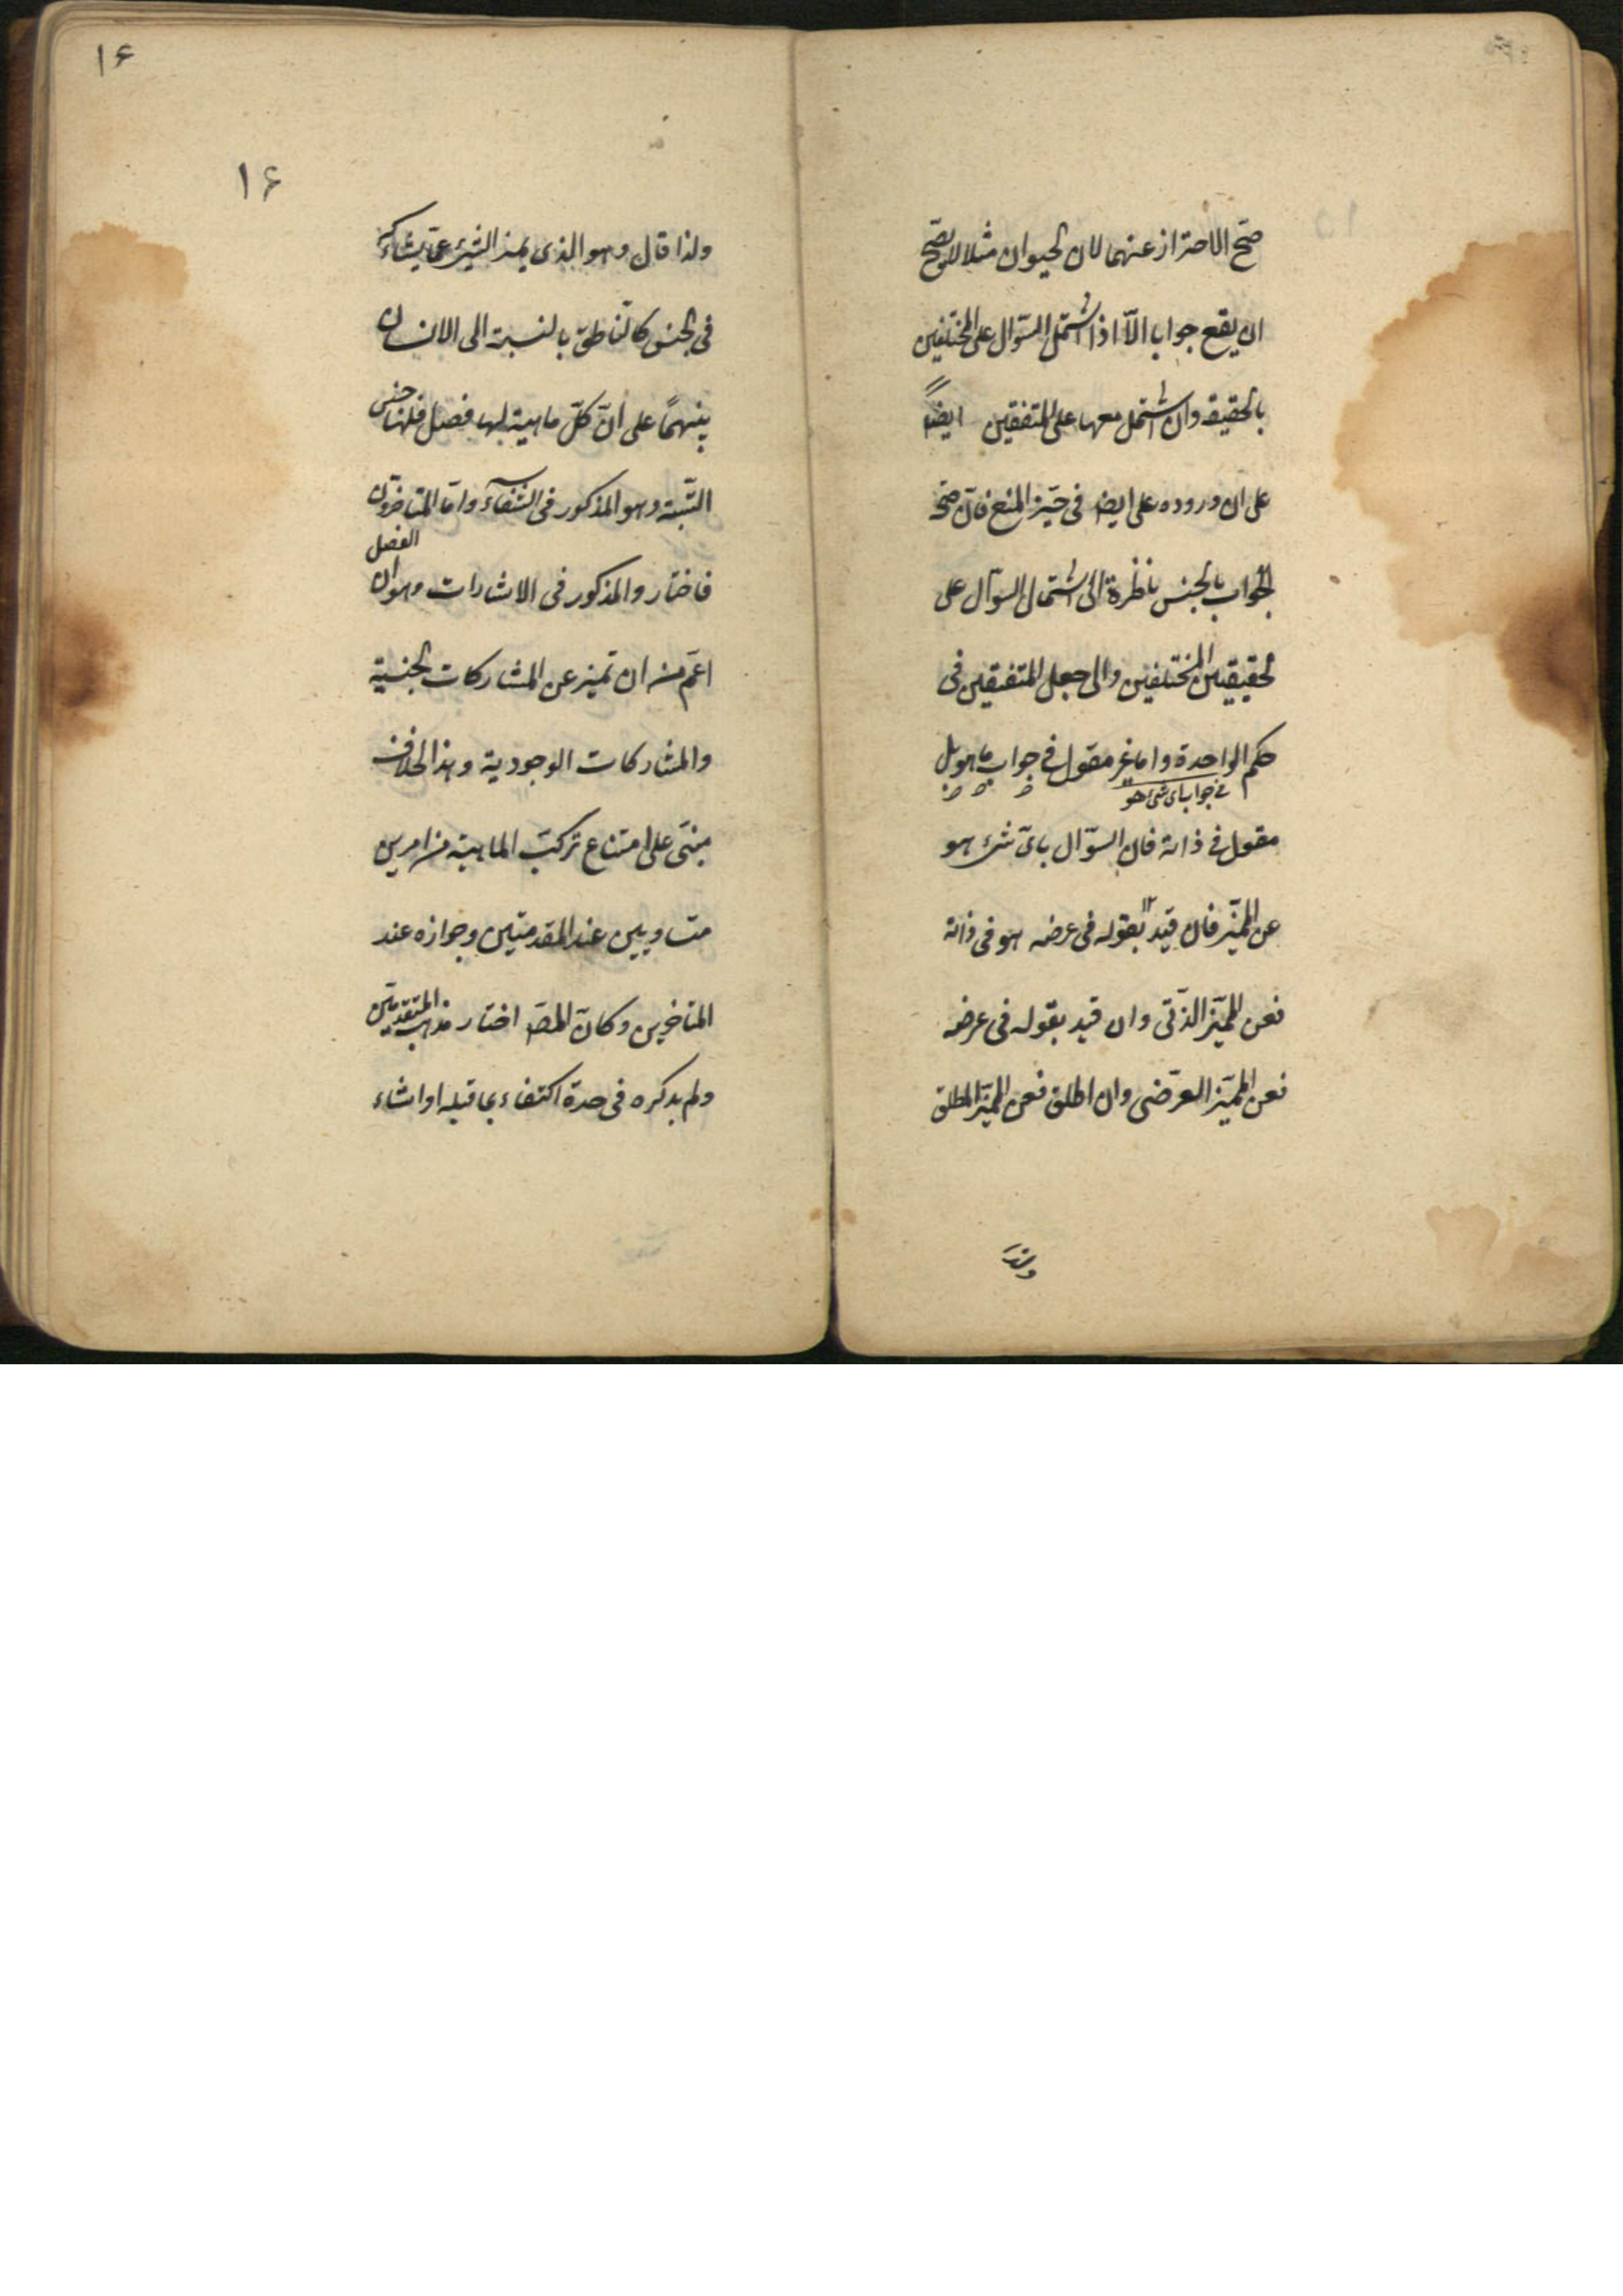 صح الاحتراز عنهما لان الحيوان مثلا لا يصح
ان يقع جوابا الّا اذا اشتمل السّؤال على المختلفين
بالحقيقة وان اشتمل معهما على المتفقين ايضاً
على ان وروده على ايضا فى حيّز المنع فان صحة
الجواب بالجنس ناظرة الى اشتمال السؤال على
الحقيقتين المختلفتين والى جعل المتفقين فى
حكم الواحدة واما غير مقول فى جواب ما هو بل
فى جواب اى شئ هو
مقول فى ذاته فان السؤال باىّ شئ هو
عن المميّز فان قيد بقوله فى عرضه هو فى ذاته
فعن المميّز الذّاتى وان قيد بقوله فى عرضه
فعن المميّز العرضى وان اطلق فعن المميّز المطلق
۱۶
۱۶
ولذا قال وهو الذى يميز الشئ عمّا يشاركه
فى الجنس كالنّاطق بالنسبة الى الانسان
على انّ كلّ ماهية لها فصل فلها جنس
البتّة وهو المذكور فى الشّفاء وامّا المتاخرون
الفصل
فاختاروا المذكور فى الاشارات وهو ان
اعم من ان تميز عن المشاركات الجنسية
والمشاركات الوجودية وهذا الخلاف
مبنى على امتناع تركب الماهية من امرين
متساويين عند المقدمتين وجوازه عند
المتاخرين وكانّ المص اختار مذهب المتقدمين
ولم يذكره فى حده اكتفاء بما قبله او اشاء